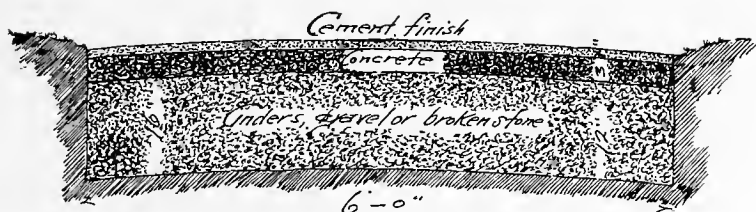 Cement finish
Concrete
3
Cinders, gravel or broken stone
6'-0"